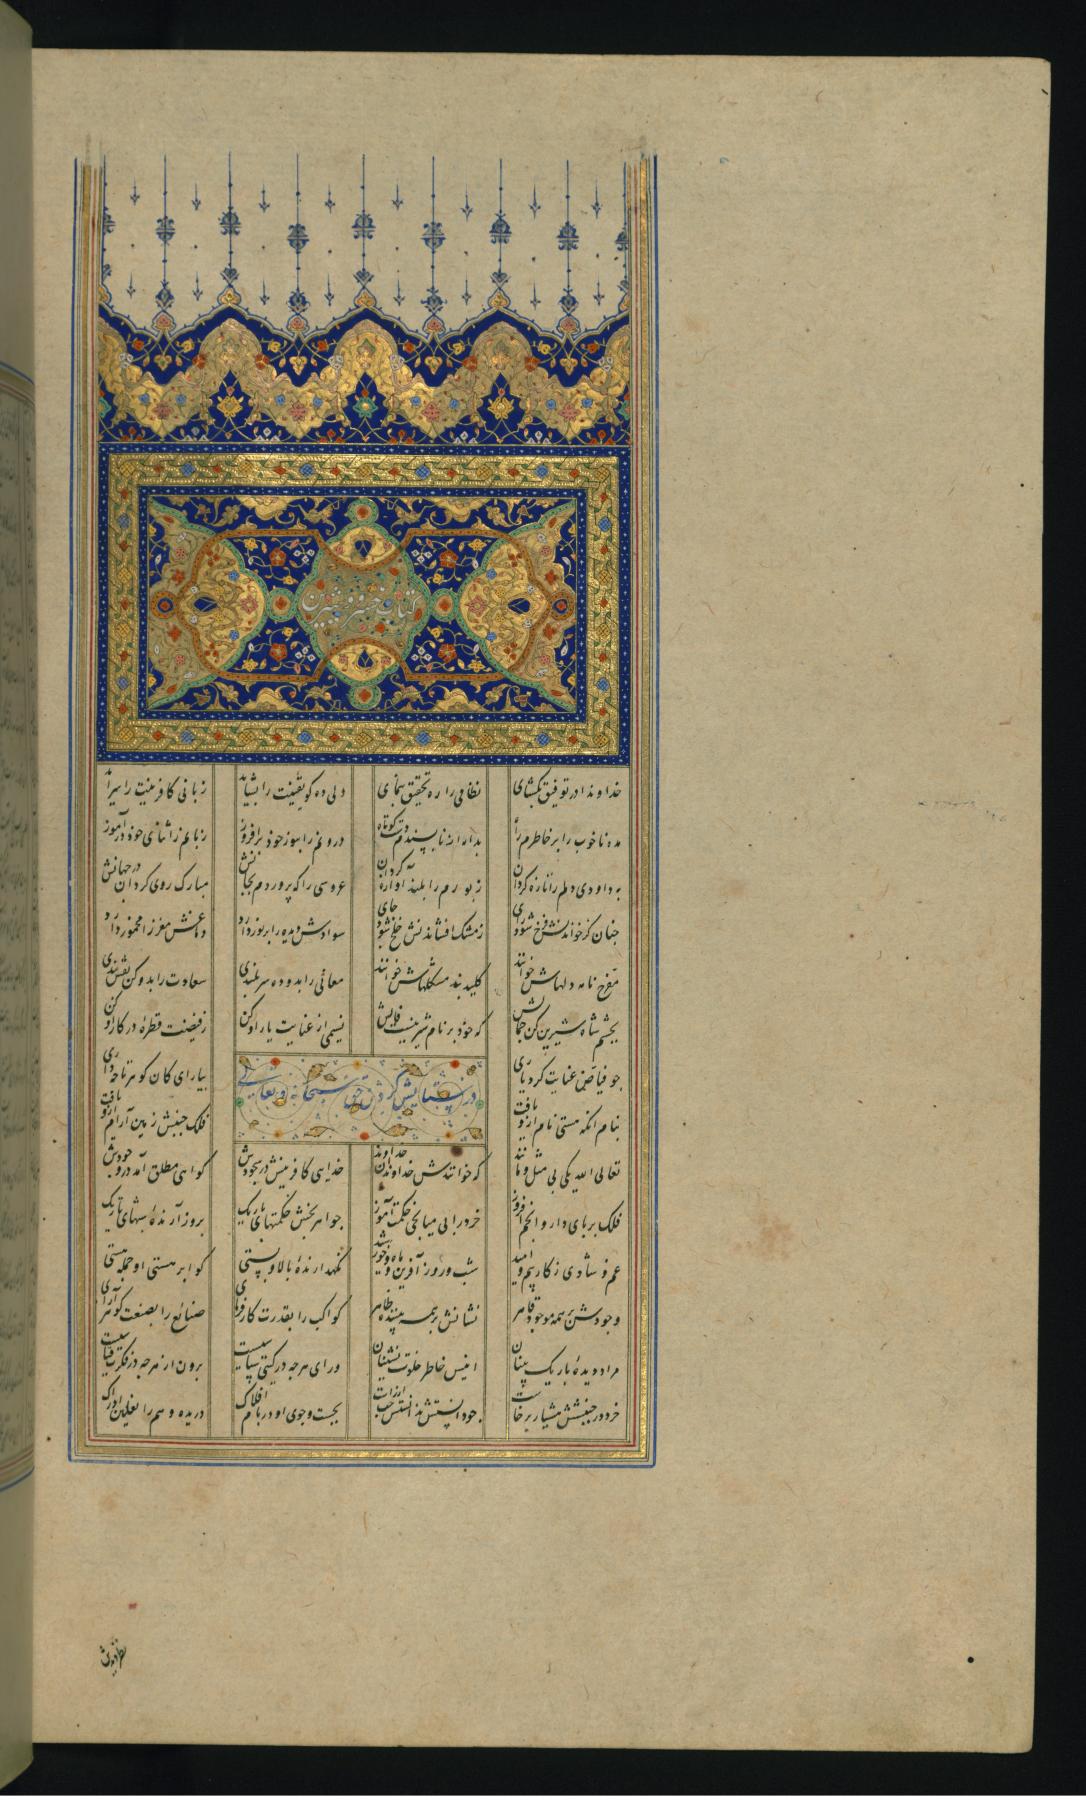 کتاب خسرو شیرین
خداوندا در توفیق بگشای نظامی را ره تحقیق بنمای دلی ده کو یقینت را بشاید زبانی کافرینت را سراید
مده ناخوب را بر خاطرم راه بدار از ناپسندم دست کوتاه درونم را بنور خود برافروز زبانم را ثنای خود درآموز
به داودی دلم را تازه گردان زبورم را بلند آوازه گردان عروسی را که پروردم بجانش مبارک روی گردان در جهانش
چنان کز خواندنش فرخ شود رای ز مشک افشاندنش خلخ شود جای سوادش دیده را پرنور دارد دماغش مغز را مخمور دارد
مفرح نامه دلهاش خوانند کلید بند مشکلهاش خوانند معانی را بدو ده سربلندی سعادت را بدو کن نقش بندی
بچشم شاه شیرین کن جمالش که خود بر نام شیرینست فالش نسیمی از عنایت یار او کن ز فیضت قطرهٔ در کار او کن
چو فیاض عنایت کرد یاری بیار ای کان گوهر تا چه داری
در ستایش کردن حق سبحانه و تعالی
بنام انکه هستی نام ازو یافت فلک جنبش زمین آرام ازو یافت
تعالی الله یکی بی مثل و مانند که خوانندش خداوندان خداوند خدایی کافرینش در سجودش گواهی مطلق آمد در وجودش
فلک برپای دار و انجم افروز خرد را بی میانجی حکمت آموز جواهر بخش حکمتهای باریک بروز آرندهٔ شبهای تاریک
غم و شادی ز کار بیم و امید شب و روز آفرین و ماه و خورشید نگهدارندهٔ بالا و پستی گوا بر هستی او جمله هستی
وجودش بر همه موجود قاهر نشانش بر همه بیننده ظاهر کواکب را بقدرت کارفرمای صنایع را بصنعت گوهر آرای
مراد دیدهٔ باریک بینان انیس خاطر خلوت نشینان ورای هرچه در گیتی اساسیست برون از هرچه در فکرت قیاسیست
خرد در جنبشش هشیار برخاست بجست وجوی او در بام افلاک دریده وهم را نعلین ادراک